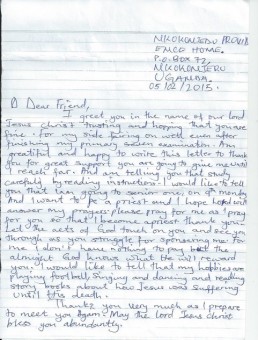 NKOKONJERU PROVID
EMCO HOME.
P.O-BOX 72,
NKOKONJERU
UGANDA.
05/02/2015.
Dear Friend,
I greet you in the name of our lord
Jesus christ trusting and hopping that you are
fine. for my side fairing on well even after
finishing my primary seven examination. Am
greatful and happy to write this letter to thank
you for great support you are going to give me until
I reach far. And am telling you that study
carefully by reading instructions. I would like to tell
you that Iam going to senior one, on 9th month.
And I want to be a priest and I hope lord will
answer my prayers. please pray for me as I pray
for you so that I become apriest thank you!
Let the acts of God touch on you and see you
through as you straggle for sponsoring me to
me I don't have nothing to pay but the
almight God knows what He will reward
you. I would like to tell that my hobbies are
playing football, singing and dancing and reading
story books about how Jesus was suffering
until his death.
Thank you very much as I prepare
to meet you again. May the lord Jesus christ
bless you abundantly.